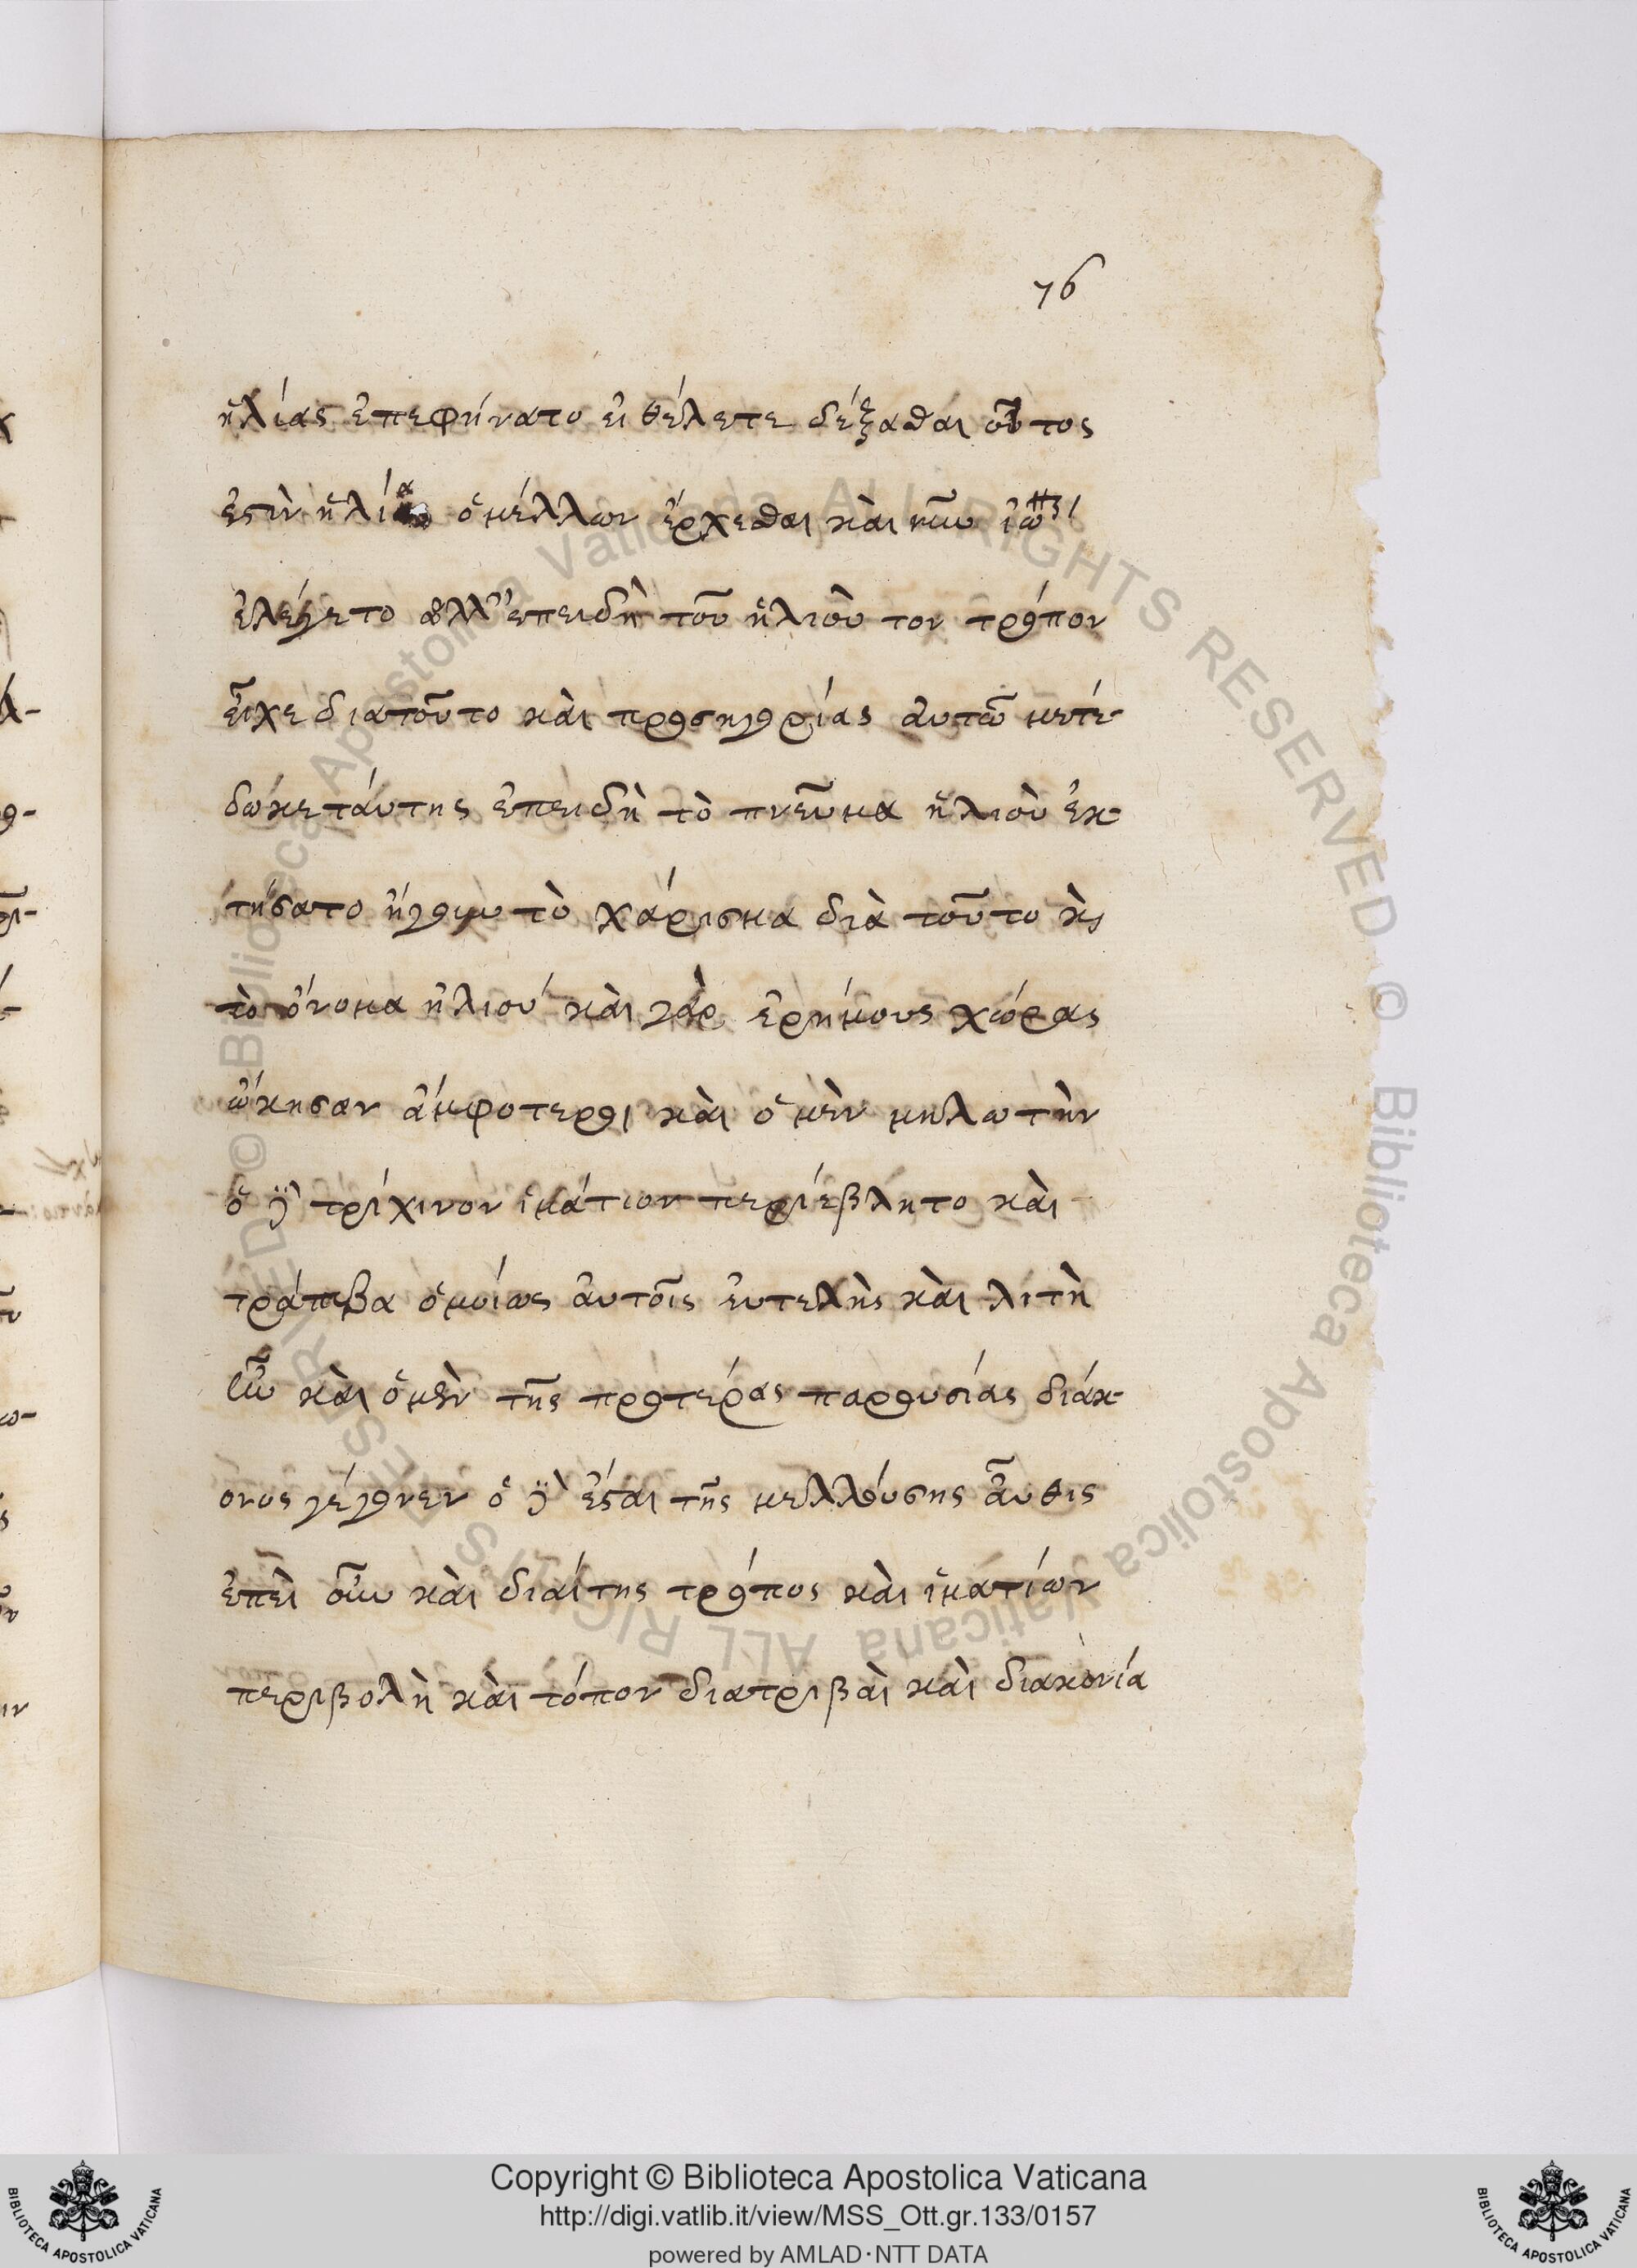 76
ἠλίας ἐπεφήνατο εἰ θέλετε δέξασθαι οὗτος
ἐστὶν ἠλίας ὁ μέλλων ἔρχεσθαι καὶ
ἐλέγετο ἀλλ' ἐπειδὴ τοῦ ἠλιοὺ τον τρόπον
εἶχε διατοῦτο καὶ προσηγορίας αὐτῶ μετέ-
δωκε ταύτης ἐπειδὴ τὸ πνεῦμα ἠλιοὺ ἐκ-
τήσατο ἤγουν τὸ χάρισμα διὰ τοῦτο καὶ
τὸ ὄνομα ἠλιού καὶ γὰρ ἐρήμους χώρας
ὤκησαν ἀμφοτεροι καὶ ὁ μὲν μηλωτὴν
ὁ δὲ τρίχινον ἱμάτιον περιέβλητο καὶ
ὁμοίως αὐτοῖς εὐτελὴς καὶ λιτὴ
ἦν καὶ ὁ μὲν τῆς προτέρας παρουσίας διάκ-
ονος γέγονεν ὁ δὲ ἔσται τῆς μελλούσης αὖθις
ἐπεὶ οὖν καὶ διαίτης τρόπος καὶ ἱματίων
περιβολὴ καὶ τόπον διατριβαὶ καὶ διακονία
Copyright © Biblioteca Apostolica Vaticana
http://digi.vatlib.it/view/MSS_Ott.gr.133/0157
powered by AMLAD·NTT DATA
BIBLIOTECA APOSTOLICA VATICANA
BIBLIOTECA APOSTOLICA VATICANA
© Biblioteca Apostolica Vaticana ALL RIGHTS RESERVED
© Biblioteca Apostolica Vaticana ALL RIGHTS RESERVED